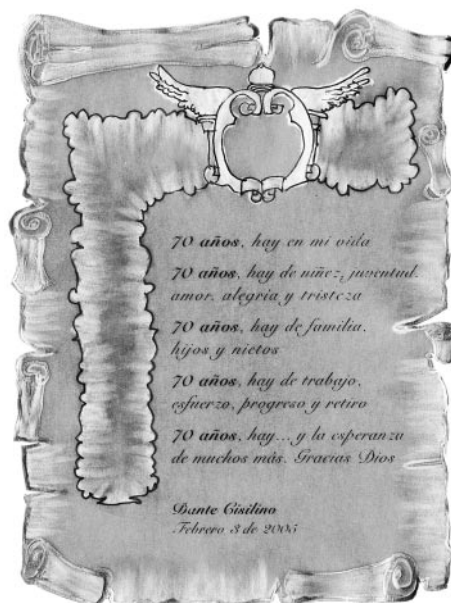 70 años, hay en mi vida
70 años, hay de niñez, juventud,
amor, alegria y tristeza
70 años, hay de familia,
hijos y nietos
70 años, hay de trabajo,
esfuerzo, progreso y retiro
70 años, hay... y la esperanza
de muchos más. Gracias Dios
Dante Cisilino
Febrero 3 de 2005